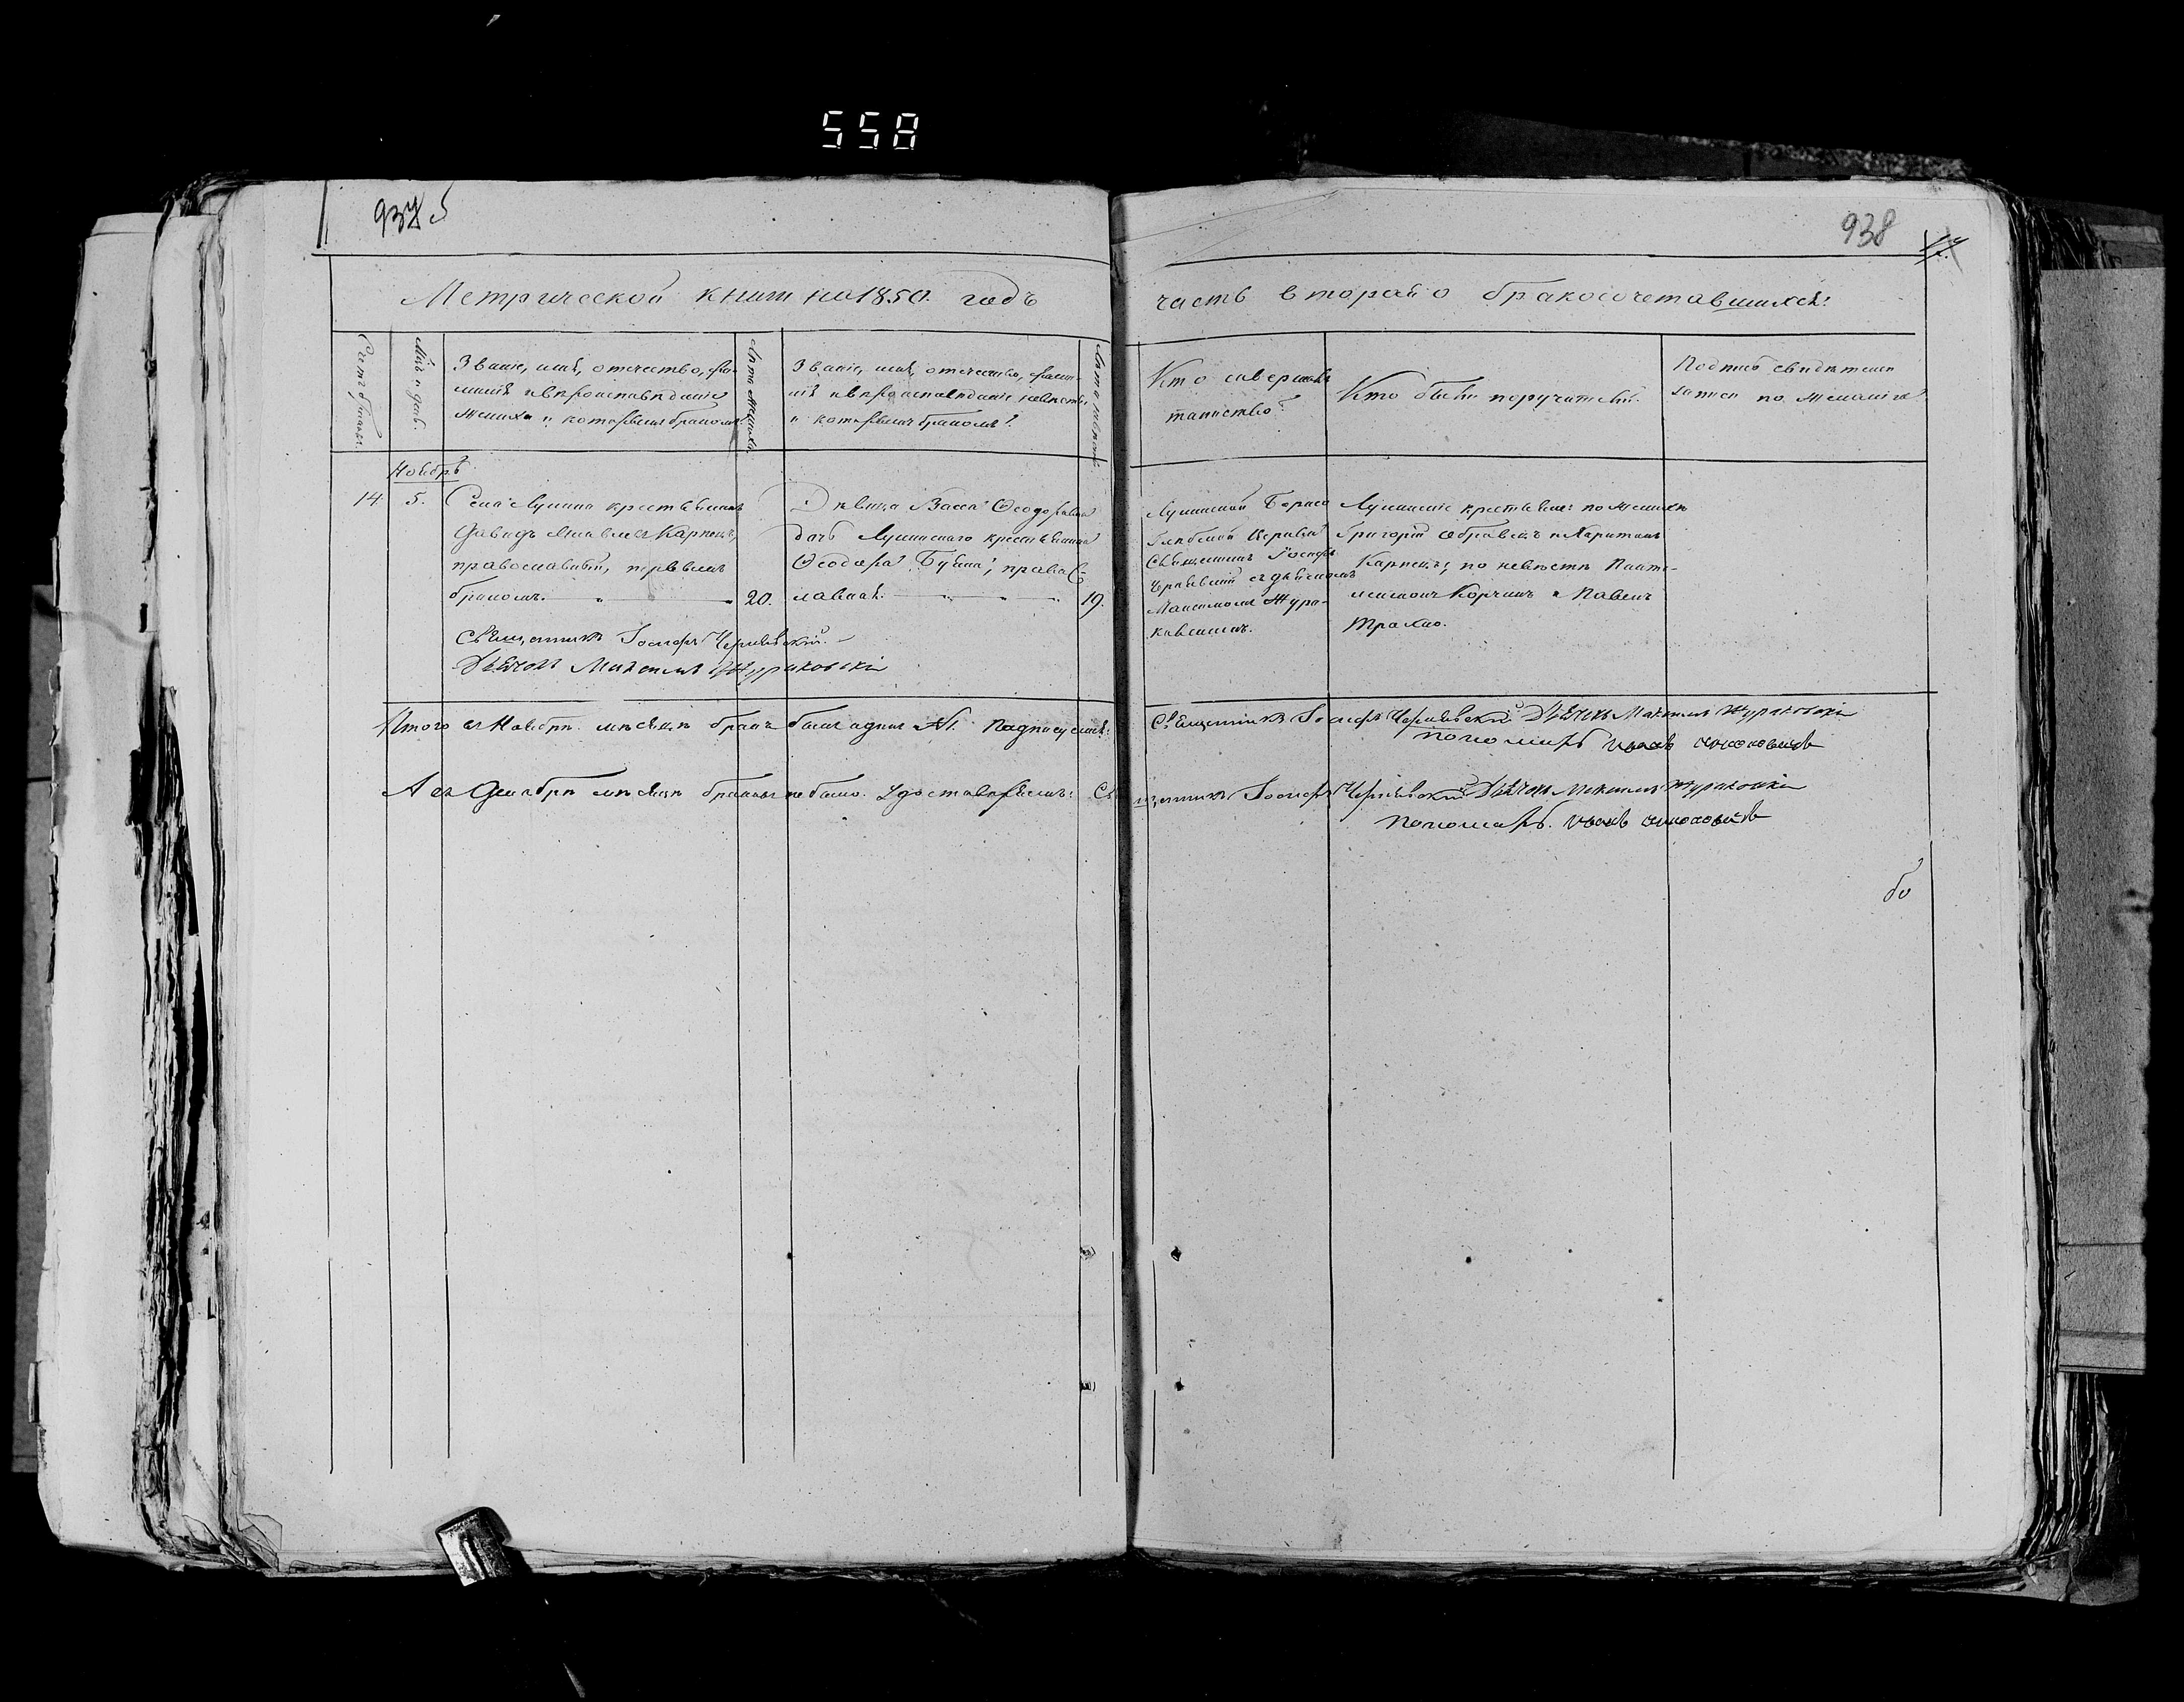 558
938
Метрической книги на 1850. годъ
часть вторая о бракосочетавшихся:
Счетъ браковъ.
Мѣс. и день.
Званіе, имя, отечество, фа-
милія и вѣроисповѣданіе
жениха и которымъ бракомъ.
Лѣта жениха.
Званіе, имя, отечество, фами-
лія и вѣроисповѣданіе невѣсты
и которымъ бракомъ.
Лѣта невѣсты.
Кто совершалъ
таинство?
Кто были поручители.
Подпись свидѣтелей
записи по желанію
Ноябрь
14. 5. Села Лунина крестьянинъ
Давидъ Карпецъ,
православный, первымъ
бракомъ. 20.
Священникъ Іосифъ Чернявскій.
Дьячокъ Максимъ Жураковскій
Дѣвица Васса Ѳеодорова
дочь Лунинскаго крестьянина
Ѳеодора, правос-
лавная. 19.
Лунинской Бориса
Глѣбской Церкви
Священникъ Іосифъ
Чернявскій съ дьячкомъ
Максимомъ Жура-
ковскимъ.
Лунинскіе крестьяне: по женихѣ
Григорій и Харитонъ
Карпецъ; по невѣстѣ Панте-
леимонъ Корчикъ и Павелъ
Трахно.
Итого въ Ноябрѣ мѣсяцѣ бракъ былъ одинъ №1. Подписуемся: Священникъ Іосифъ Чернявскій Дьячокъ Максимъ Жураковскій
пономарь
А въ Декабрѣ мѣсяцѣ браковъ не было. Удостовѣряемъ: Священникъ Іосифъ Чернявскій Дьячокъ Максимъ Жураковскій
пономарь.